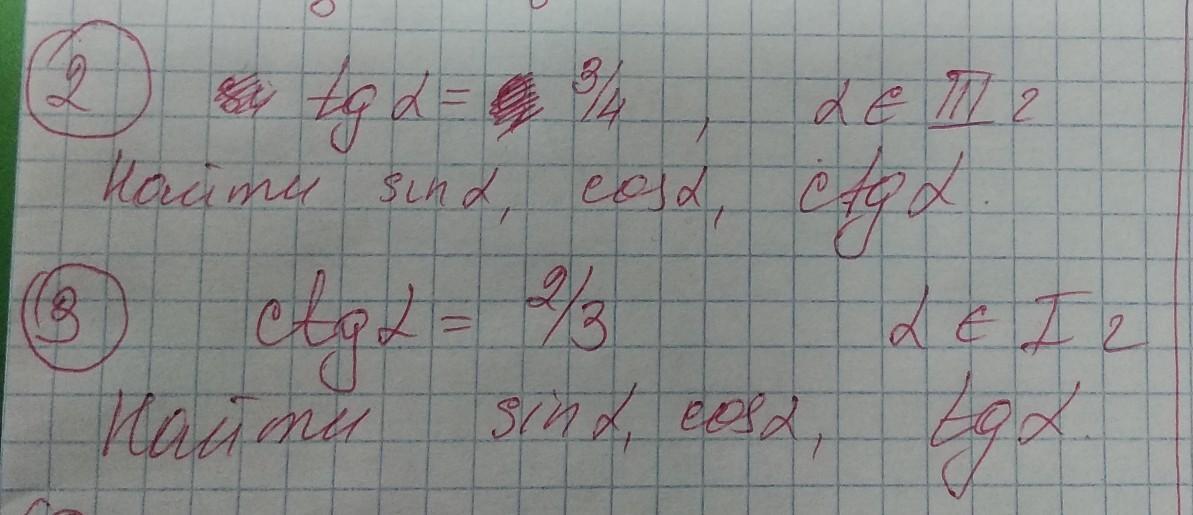 2 tg α = 3/4, α ∈ III г
Найти sin α, cos α, ctg α.
3 ctg α = 2/3 α ∈ I г
Найти sin α, cos α, tg α.